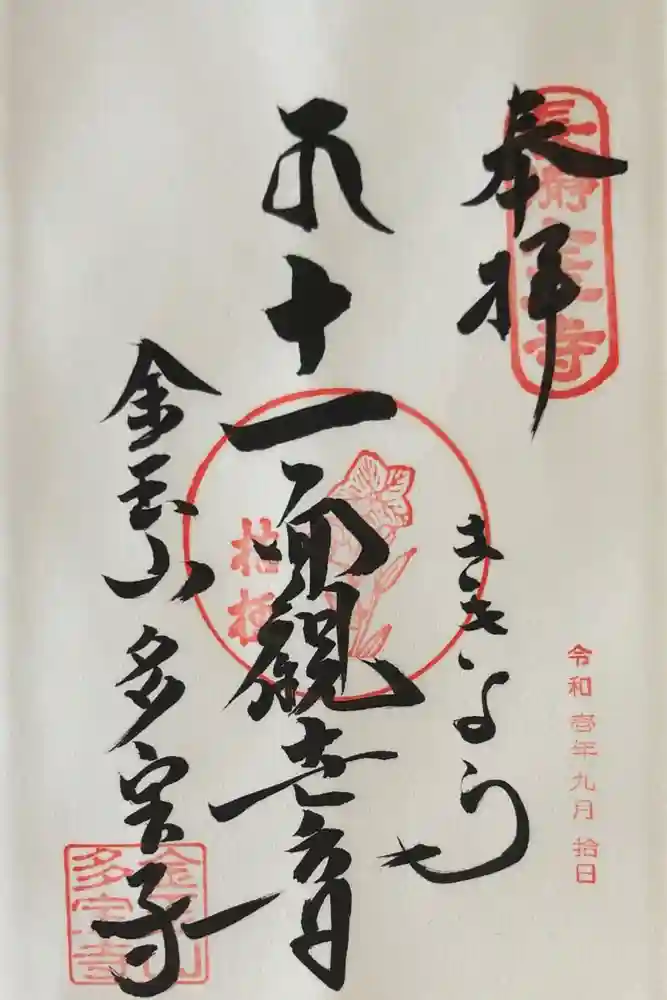 奉拝
長瀞七草寺
令和 壱年九月 拾日
十一面観世音
桔梗
金玉山 多宝寺
金玉山
多宝寺